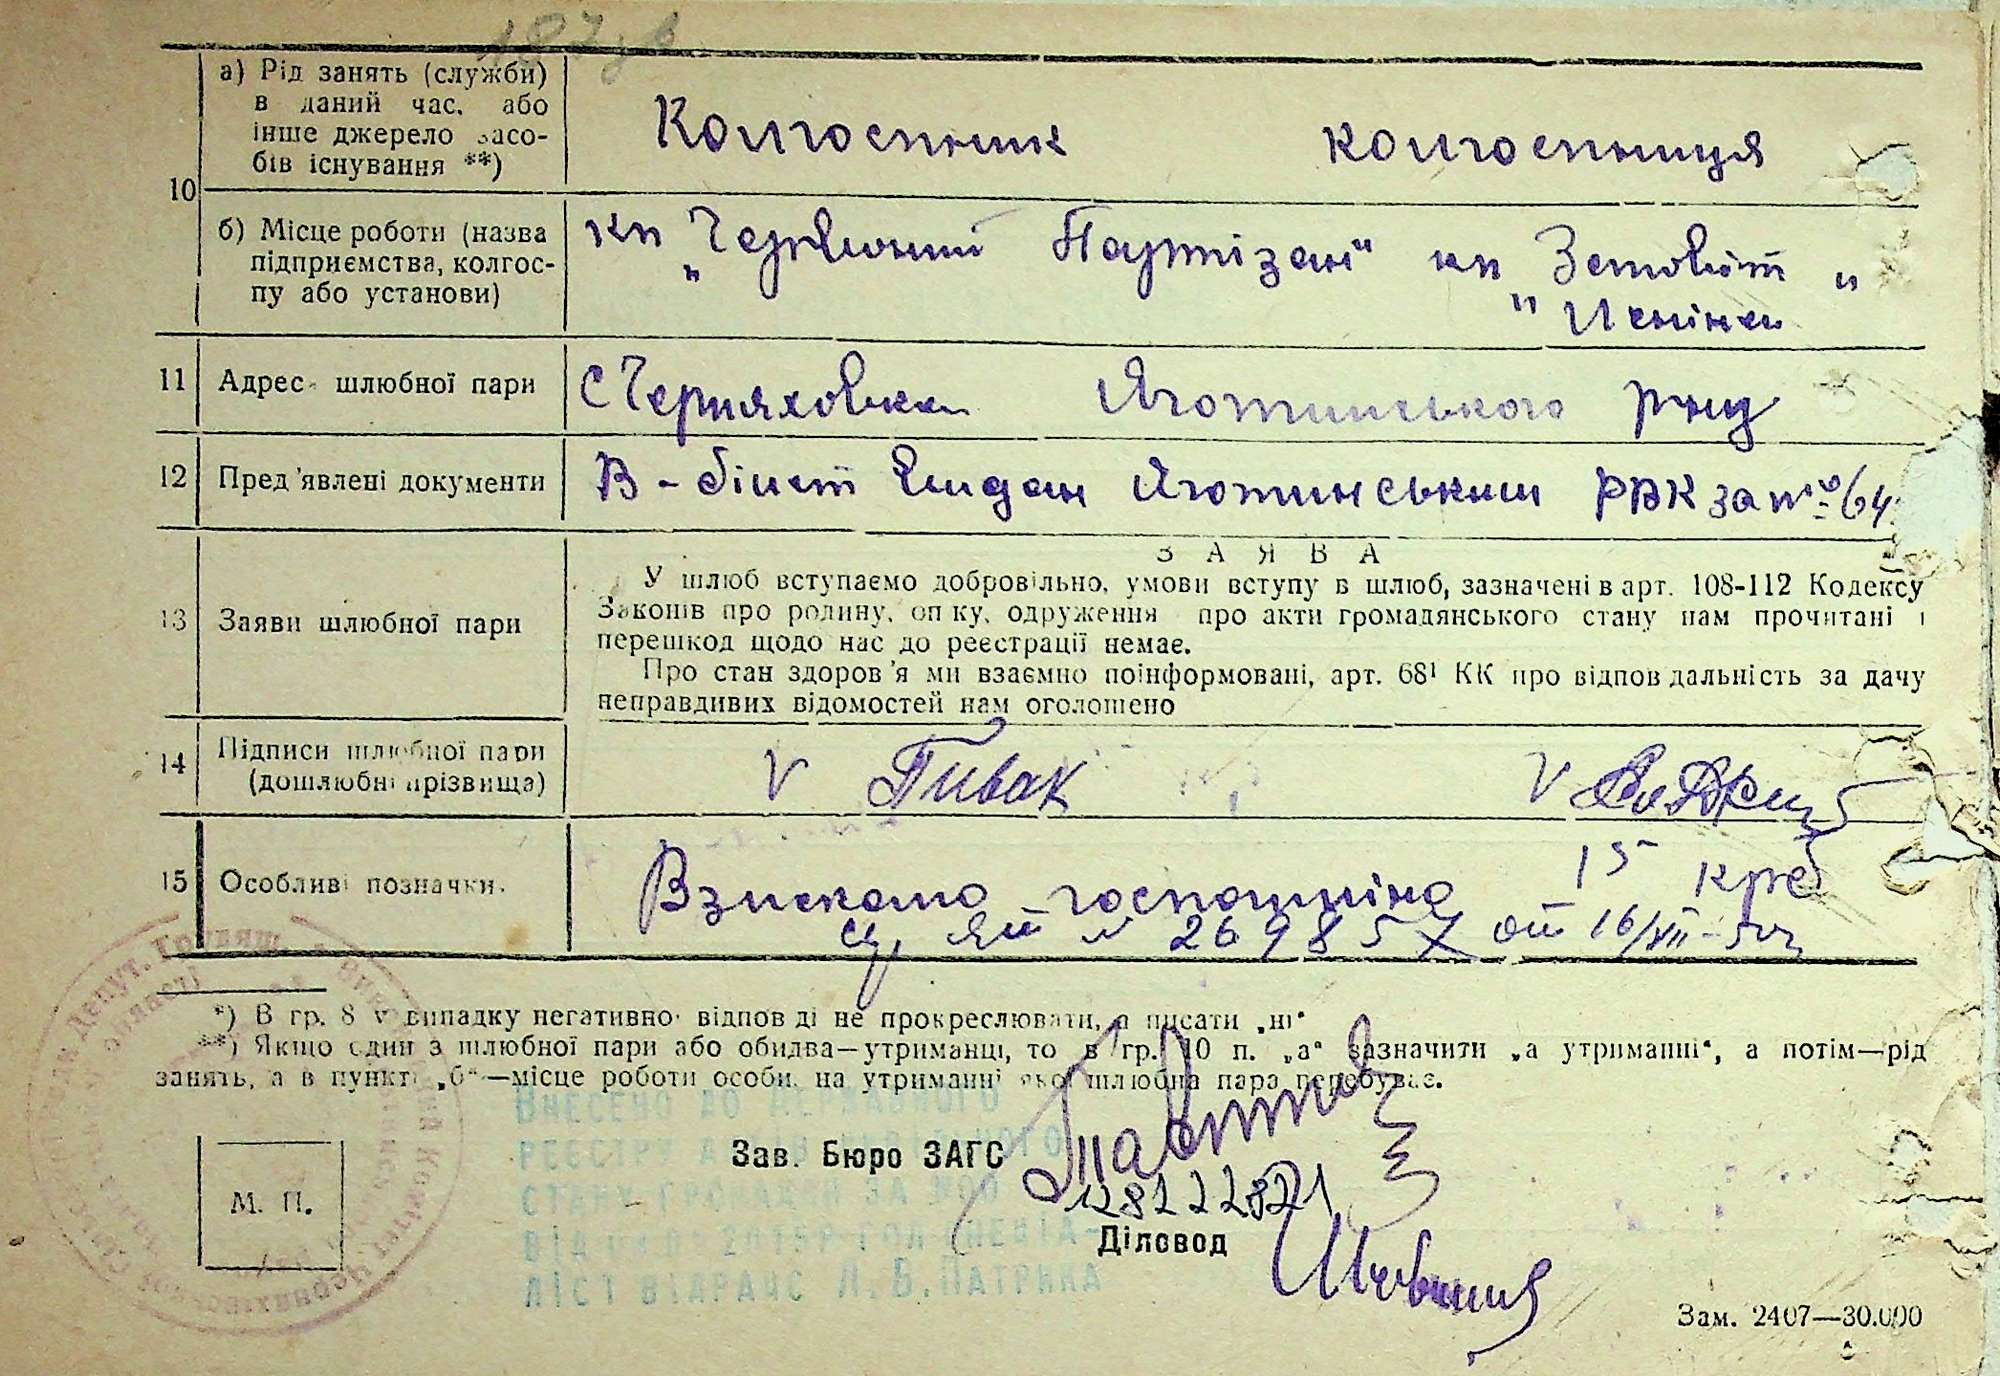 10
а) Рід занять (служби)
в даний час, або
інше джерело засо-
бів існування **)
Колгоспник колгоспниця
б) Місце роботи (назва
підприємства, колгос-
пу або установи)
кп „Червоний Партізан" кп Заповіт "
11 Адрес шлюбної пари С Черняховка Яготинського р-ну
12 Пред'явлені документи В-білет Видан Яготинським РВК за №
13 Заяви шлюбної пари
ЗАЯВА
У шлюб вступаємо добровільно, умови вступу в шлюб, зазначені в арт. 108-112 Кодексу
Законів про родину, оп ку, одруження про акти громадянського стану нам прочитані і
перешкод щодо нас до реєстрації немає.
Про стан здоров'я ми взаємно поінформовані, арт. 68¹ КК про відпов дальність за дачу
неправдивих відомостей нам оголошено
14 Підписи шлюбної пари
(дошлюбні прізвища)
V Пивак V
15 Особливі позначки.
Взискано госпошліна 15 крб
№ 269857 от 16/XII
*) В гр. 8 у випадку негативної відпов ді не прокреслювати, а писати „ні"
**) Якщо один з шлюбної пари або обидва—утриманці, то в гр. 10 п. „а" зазначити „а утриманні", а потім—рід
занять, а в пункті „б"—місце роботи особи, на утриманні якої шлюбна пара перебуває.
Внесено до Державного
реєстру актів цивільного
стану громадян за №00
128222871
від 2015р гол спеціа-
ліст відрацс Л.Б.Патрика
Зав. Бюро ЗАГС
М. П.
Діловод
Зам. 2407—30.000